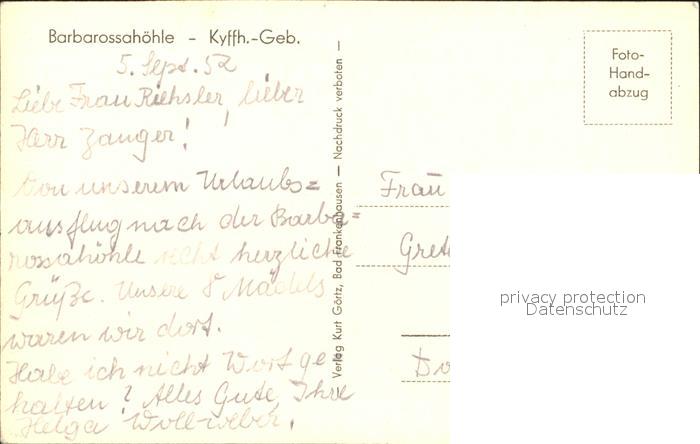 Barbarossahöhle - Kyffh.-Geb.
5. Sept. 52
Liebe Frau Riehsler, lieber
Herr Zanger!
Von unserem Urlaubs=
ausflug nach der Barba=
rossahöhle recht herzliche
Grüße. Unsere 8 Mädels
waren wir dort.
Habe ich nicht Wort ge
halten? Alles Gute, Ihre
Helga Woll-weber.
Verlag Kurt Görtz, Bad Frankenhausen — Nachdruck verboten —
Foto-
Hand-
abzug
Frau
Gret
Do
privacy protection
Datenschutz